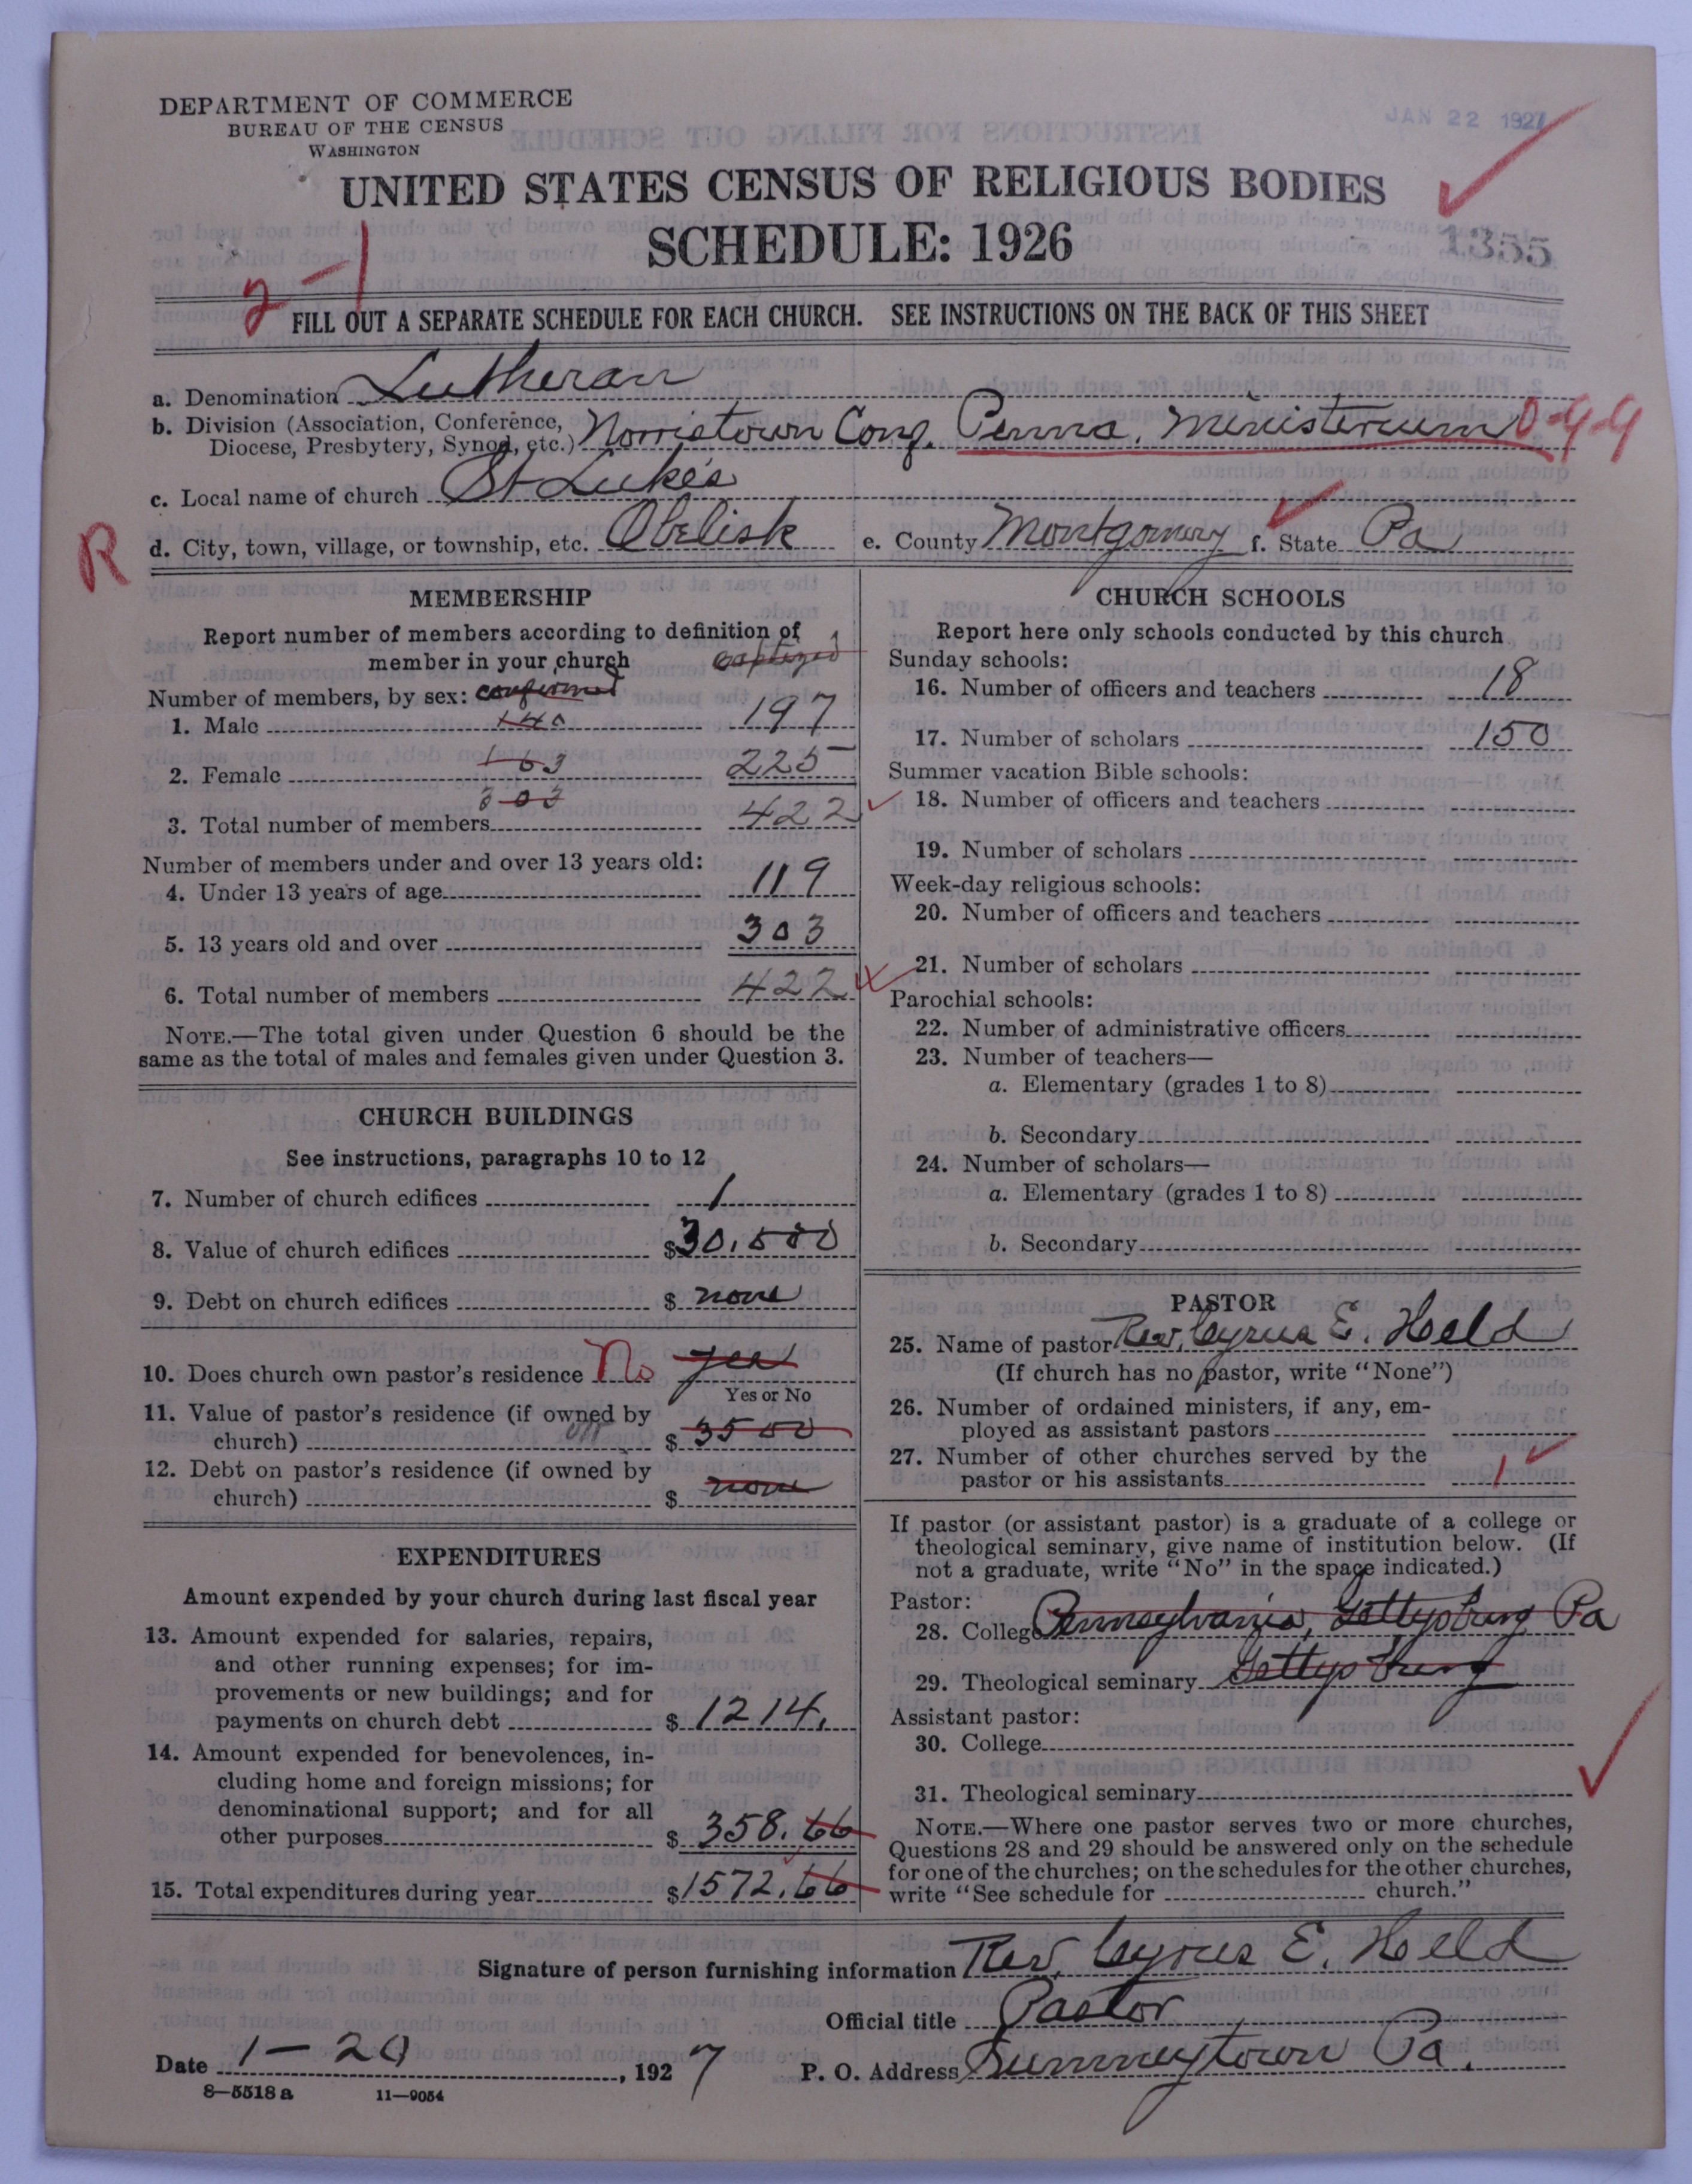 DEPARTMENT OF COMMERCE
BUREAU OF THE CENSUS
WASHINGTON
JAN 22 1927
UNITED STATES CENSUS OF RELIGIOUS BODIES
SCHEDULE: 1926
1355
2-1
FILL OUT A SEPARATE SCHEDULE FOR EACH CHURCH. SEE INSTRUCTIONS ON THE BACK OF THIS SHEET
a. Denomination Lutheran
b. Division (Association, Conference,
Diocese, Presbytery, Synod, etc.) Norristown Conf. Penna. Ministerium 0-9-9
c. Local name of church St Luke's
R
d. City, town, village, or township, etc. Obelisk e. County Montgomery f. State Pa
MEMBERSHIP
Report number of members according to definition of
member in your church baptized
Number of members, by sex: confirmed
1. Male 140 197
2. Female 163 225
303
3. Total number of members 422
Number of members under and over 13 years old:
4. Under 13 years of age 119
5. 13 years old and over 303
6. Total number of members 422
NOTE.—The total given under Question 6 should be the
same as the total of males and females given under Question 3.
CHURCH BUILDINGS
See instructions, paragraphs 10 to 12
7. Number of church edifices 1
8. Value of church edifices $30,500
9. Debt on church edifices $ none
10. Does church own pastor's residence No yes
Yes or No
11. Value of pastor's residence (if owned by
church) $ 3500
12. Debt on pastor's residence (if owned by
church) $ none
EXPENDITURES
Amount expended by your church during last fiscal year
13. Amount expended for salaries, repairs,
and other running expenses; for im-
provements or new buildings; and for
payments on church debt $ 1214.
14. Amount expended for benevolences, in-
cluding home and foreign missions; for
denominational support; and for all
other purposes $ 358.66
15. Total expenditures during year $1572.66
CHURCH SCHOOLS
Report here only schools conducted by this church
Sunday schools:
16. Number of officers and teachers 18
17. Number of scholars 150
Summer vacation Bible schools:
18. Number of officers and teachers
19. Number of scholars
Week-day religious schools:
20. Number of officers and teachers
21. Number of scholars
Parochial schools:
22. Number of administrative officers
23. Number of teachers—
a. Elementary (grades 1 to 8)
b. Secondary
24. Number of scholars—
a. Elementary (grades 1 to 8)
b. Secondary
PASTOR
25. Name of pastor Rev. Cyrus E. Held
(If church has no pastor, write "None")
26. Number of ordained ministers, if any, em-
ployed as assistant pastors
27. Number of other churches served by the
pastor or his assistants 1
If pastor (or assistant pastor) is a graduate of a college or
theological seminary, give name of institution below. (If
not a graduate, write "No" in the space indicated.)
Pastor:
28. College Pennsylvania, Gettysburg Pa
29. Theological seminary Gettysburg
Assistant pastor:
30. College
31. Theological seminary
NOTE.—Where one pastor serves two or more churches,
Questions 28 and 29 should be answered only on the schedule
for one of the churches; on the schedules for the other churches,
write "See schedule for church."
Signature of person furnishing information Rev. Cyrus E. Held
Official title Pastor
Date 1-20, 1927 P. O. Address Sumneytown Pa.
8—5518a 11—9054